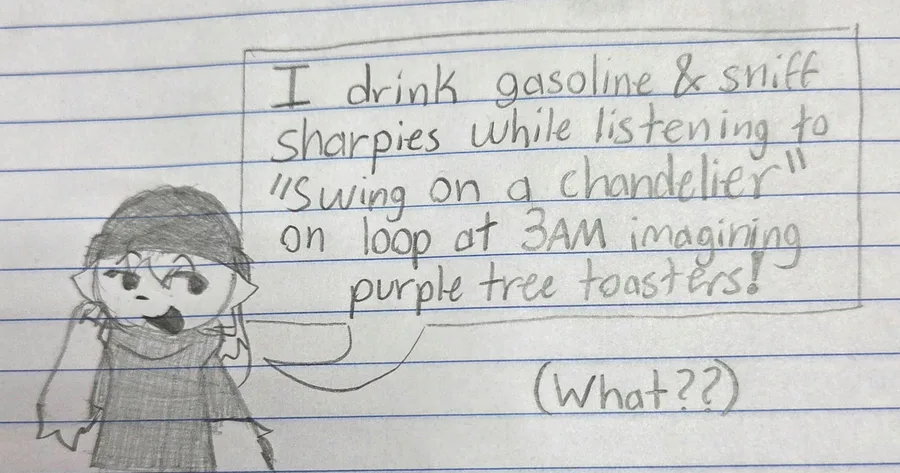 I drink gasoline & sniff
sharpies while listening to
"Swing on a chandelier"
on loop at 3AM imagining
purple tree toasters!
(What??)